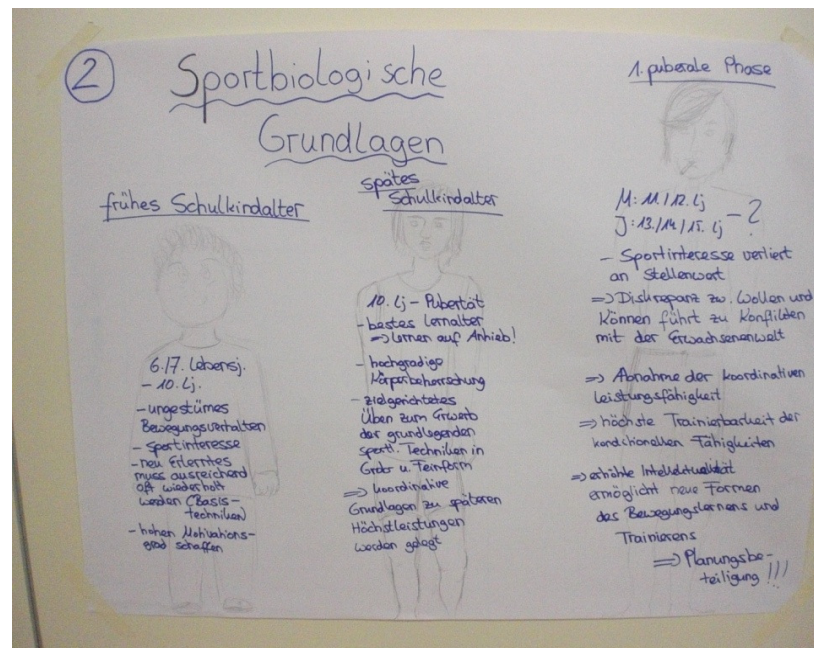 2
Sportbiologische
Grundlagen
frühes Schulkindalter
6./7. Lebensj.
– 10. Lj.
– ungestümes
Bewegungsverhalten
– Sportinteresse
– neu Erlerntes
muss ausreichend
oft wiederholt
werden (Basis-
techniken)
– hohen Motivations-
grad schaffen
spätes
Schulkindalter
10. Lj – Pubertät
– bestes Lernalter
=> lernen auf Anhieb!
– hochgradige
Körperbeherrschung
– zielgerichtetes
Üben zum Erwerb
der grundlegenden
sportl. Techniken in
Grob u. Feinform
=> koordinative
Grundlagen zu späteren
Höchstleistungen
werden gelegt
1. puberale Phase
M: 11./12. Lj
J: 13./14./15. Lj – ?
– Sportinteresse verliert
an Stellenwert
=> Diskrepanz zw. Wollen und
Können führt zu Konflikten
mit der Erwachsenenwelt
=> Abnahme der koordinativen
Leistungsfähigkeit
=> höchste Trainierbarkeit der
konditionellen Fähigkeiten
=> erhöhte Intellektualität
ermöglicht neue Formen
des Bewegungslernens und
Trainierens
=> Planungsbe-
teiligung !!!